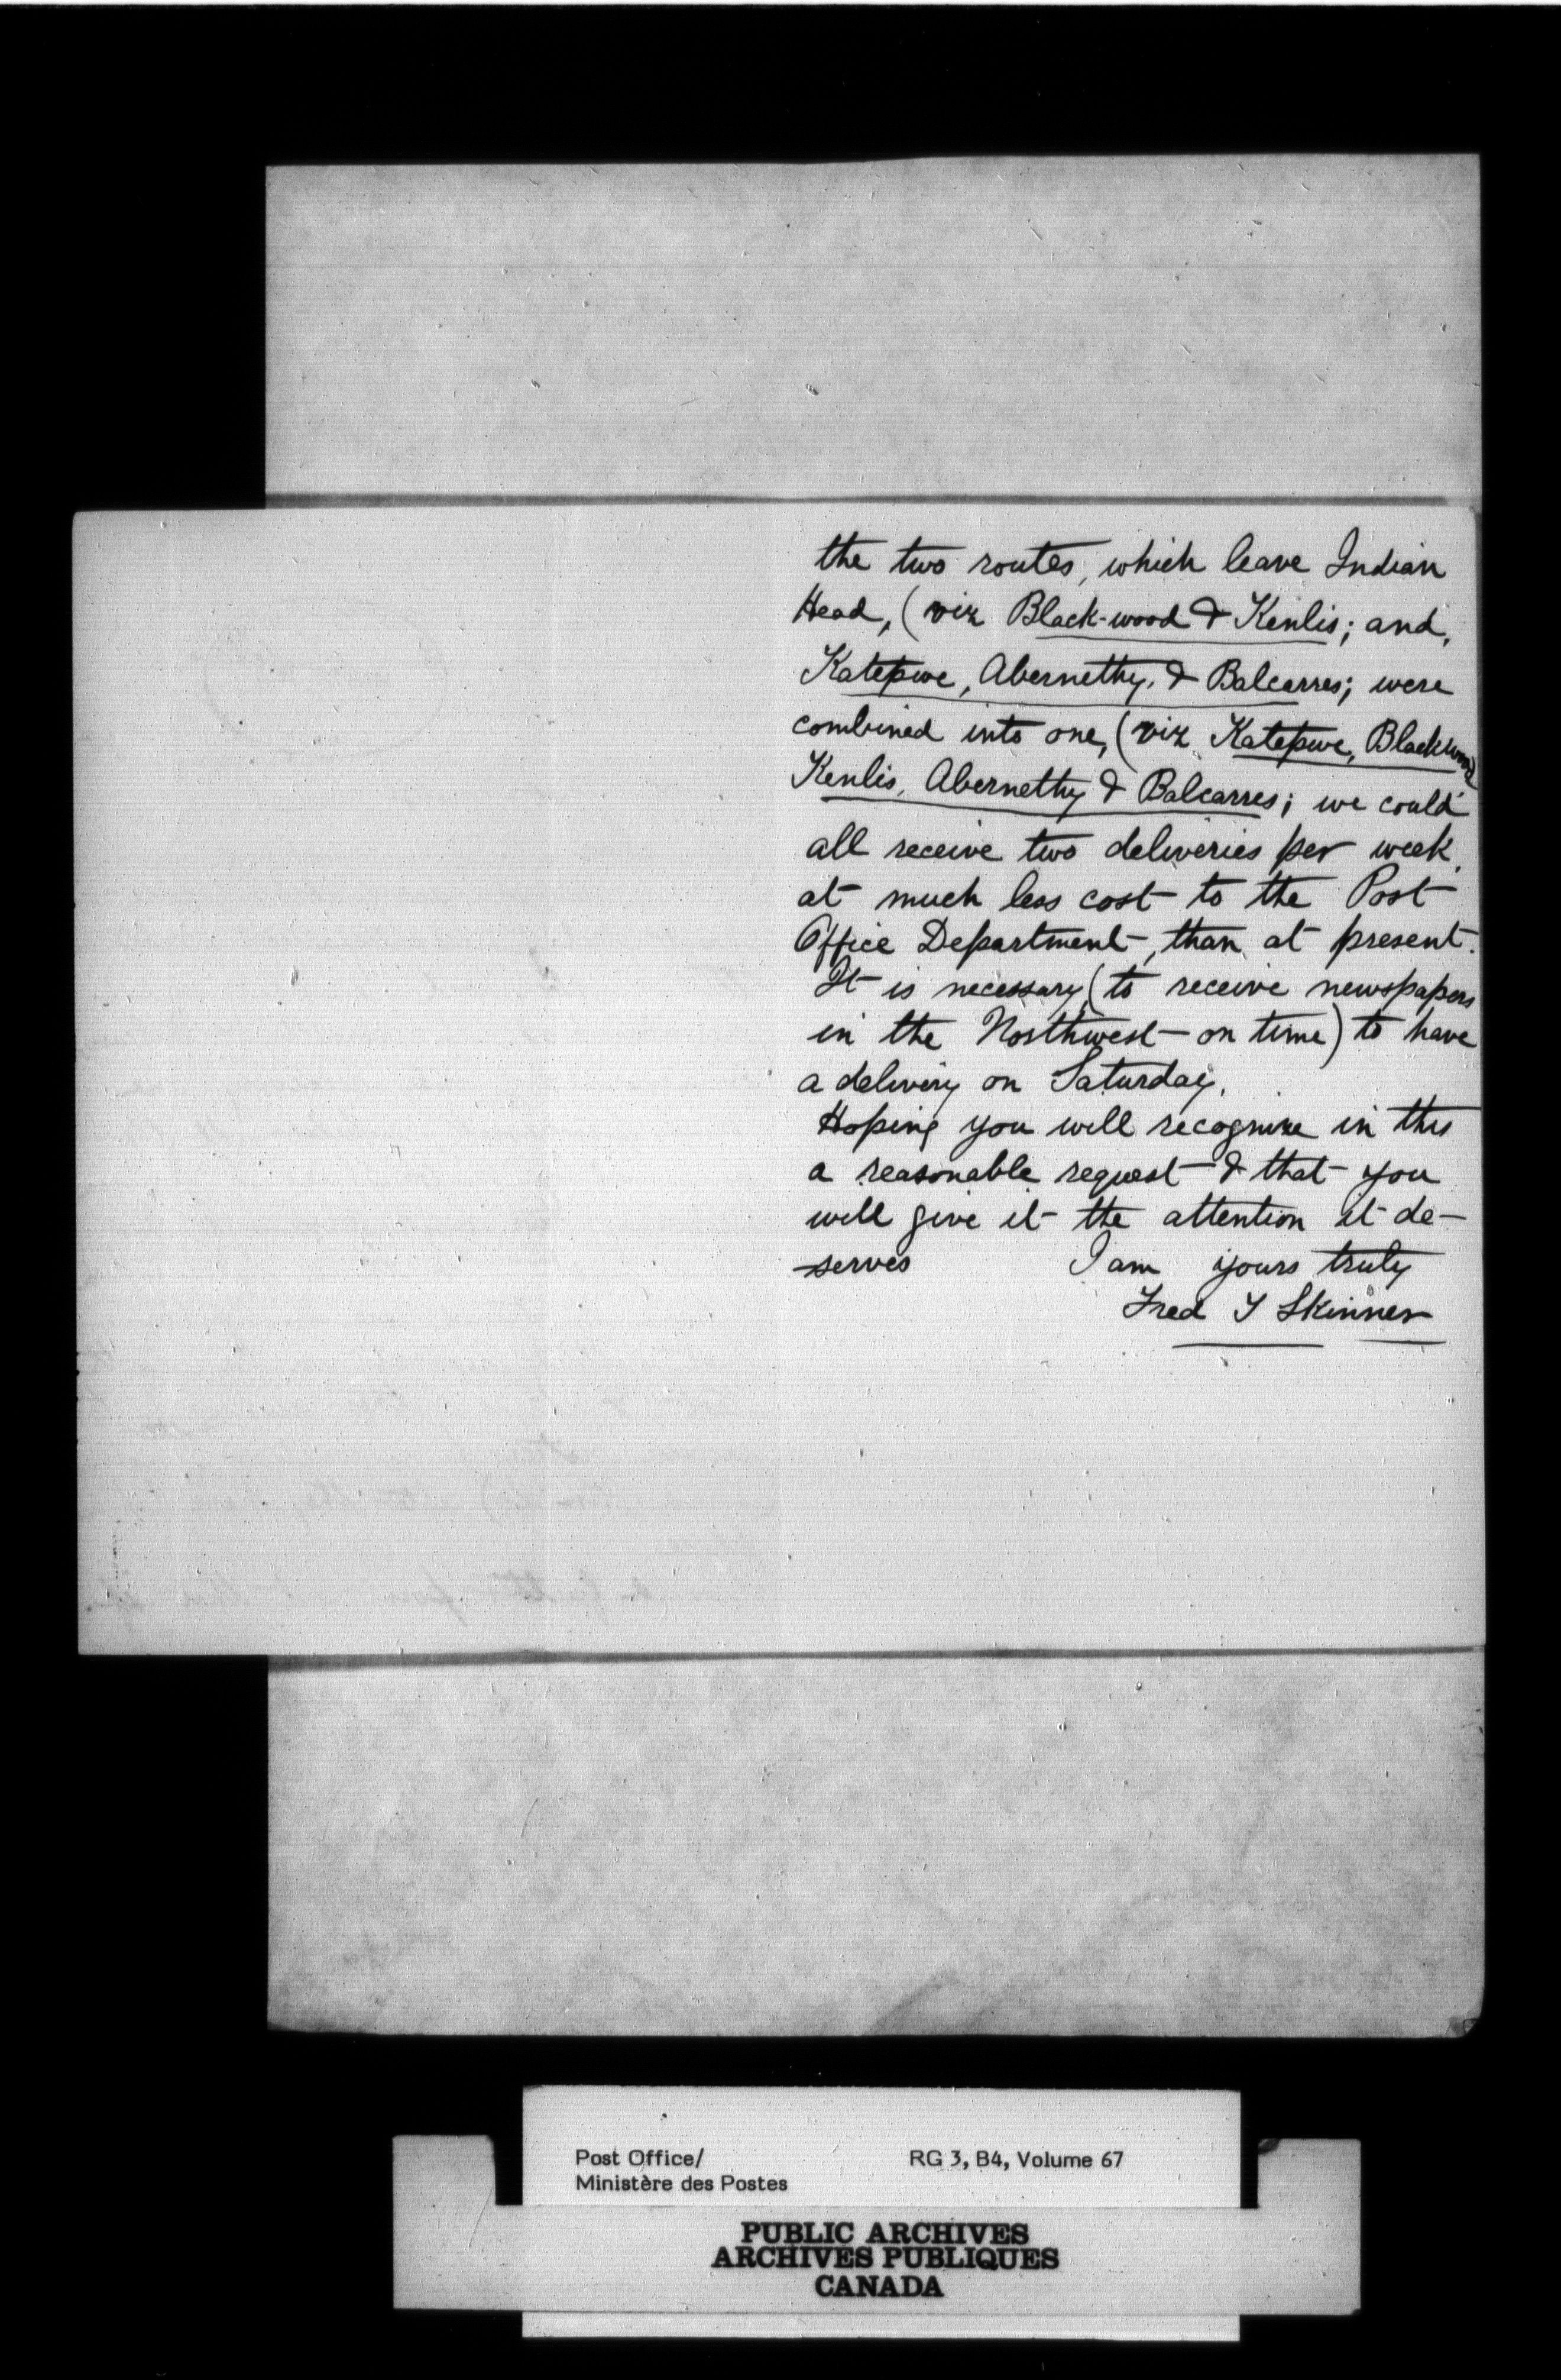 the two routes, which leave Indian
Head, (viz Black-wood & Kenlis; and,
Katepwe, Abernethy, & Balcarres; were
combined into one, (viz Katepwe, Blackwood
Kenlis, Abernethy & Balcarres; we could
all receive two deliveries per week,
at much less cost to the Post
Office Department, than at present.
It is necessary (to receive newspapers
in the Northwest on time) to have
a delivery on Saturday.
Hoping you will recognize in this
a reasonable request & that you
will give it the attention it de-
-serves I am yours truly
Fred Skinner
Post Office/ RG 3, B4, Volume 67
Ministère des Postes
PUBLIC ARCHIVES
ARCHIVES PUBLIQUES
CANADA